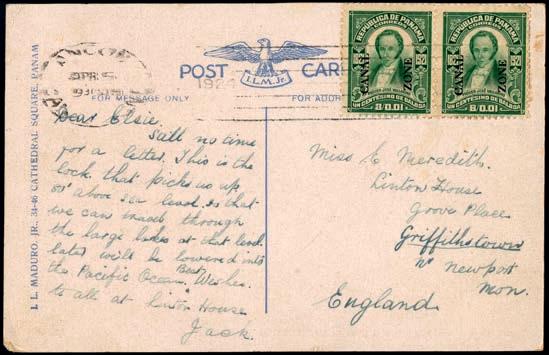 REPUBLICA DE PANAMA
CORREOS
CANAL
ZONE
UN CENTESIMO DE BALBOA
B/0.01
REPUBLICA DE PANAMA
CORREOS
CANAL
ZONE
UN CENTESIMO DE BALBOA
B/0.01
POST CARD
I.L.M. Jr.
FOR MESSAGE ONLY
FOR ADDR
I. L. MADURO. JR. 34-46 CATHEDRAL SQUARE, PANAM
Dear Elsie.
Still no time
for a letter. This is the
lock, that picks us up
85' above sea level. so that
we can travel through
the large lakes at that level.
later will be lowered into
the Pacific Ocean. Best Wishes.
to all at Linton House
Jack.
Miss E Meredith.
Linton House
Grove Place
Griffithstown
Nr Newport
Mon.
England.